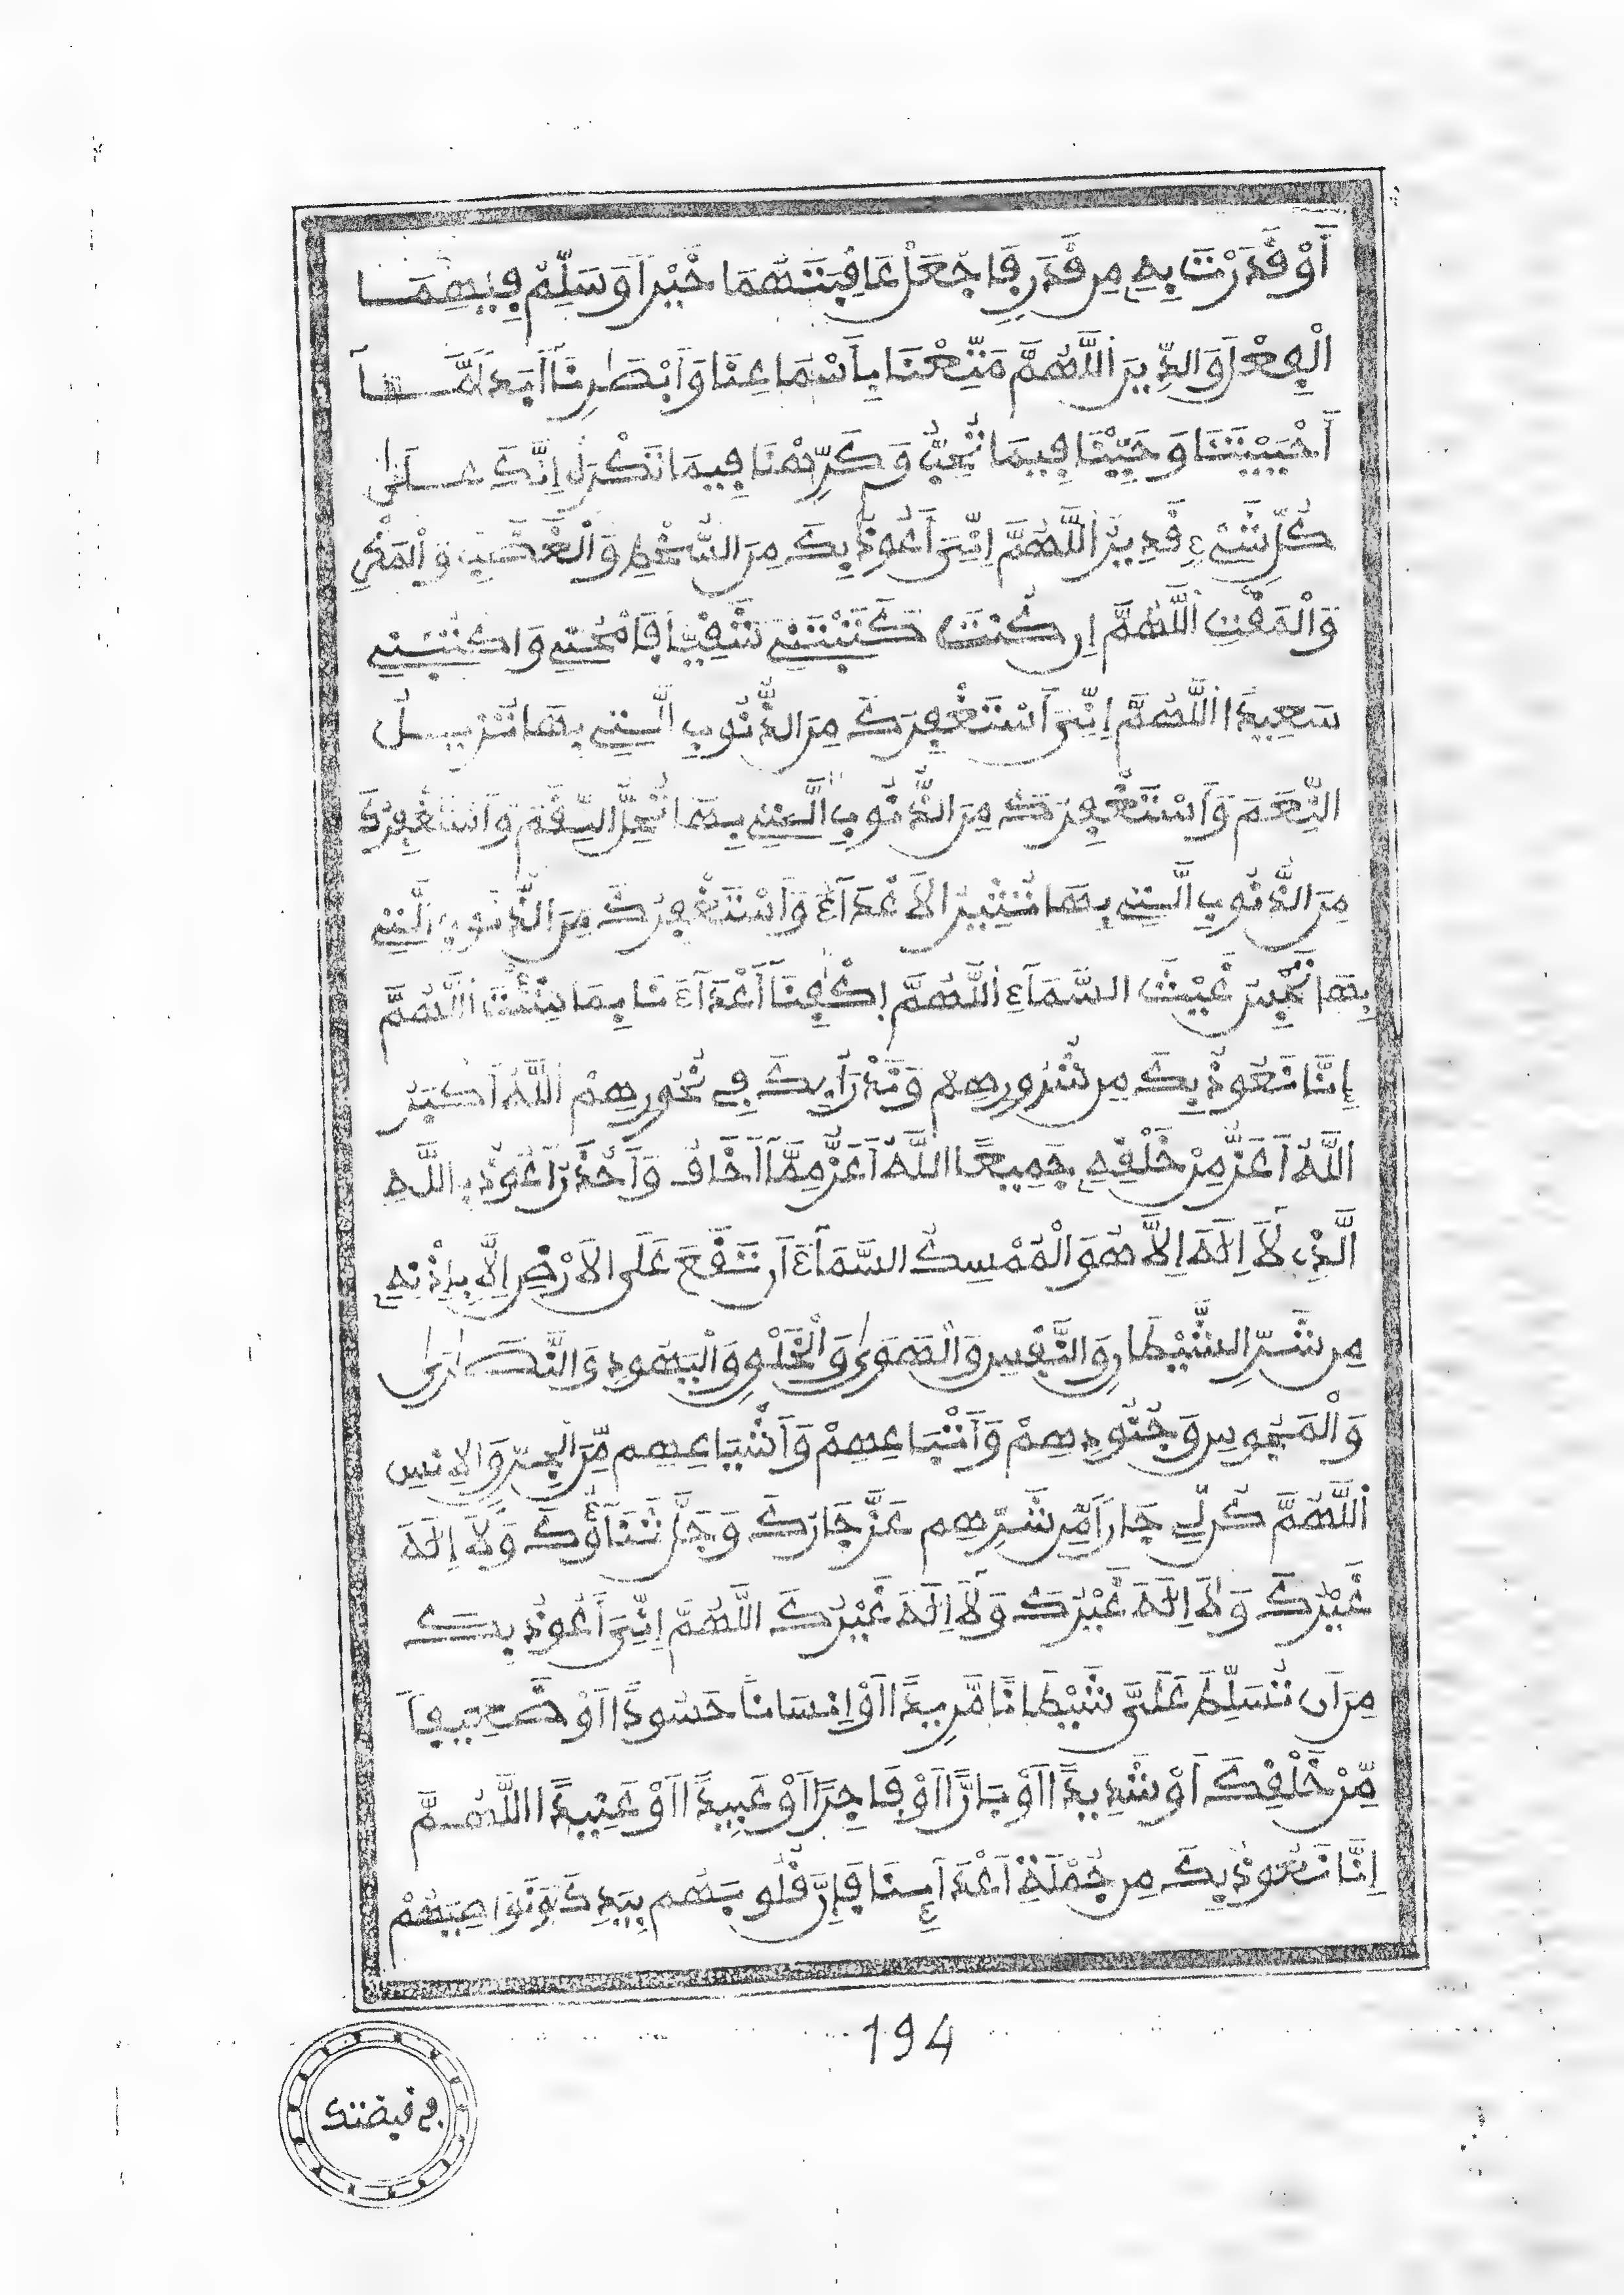 أَوْ قَدَرْتَ بِهِ مِن قَدَرٍ فَاجْعَلْ عَاقِبَتَهُمَا خَيْراً وَسَلِّمْ فِيهِمَا
الْعِقْلَ وَالدِّينَ اللَّهُمَّ مَتِّعْنَا بِأَسْمَاعِنَا وَأَبْصَٰرِنَا أَبَداً مَّآ
أَحْيَيْتَنَا وَحَبِّبْنَا فِيمَا تُحِبُّ وَكَرِّهْنَا فِيمَا تَكْرَهُ إِنَّكَ عَلَىٰ
كُلِّ شَيْءٍ قَدِيرٌ اللَّهُمَّ إِنِّيَ أَعُوذُ بِكَ مِنَ السُّخْطِ وَالْغَضَبِ وَالْمَحْيِ
وَالْمَقْتِ اللَّهُمَّ إِن كُنتَ كَتَبْتَنِي شَقِيّاً فَامْحُنِي وَاكْتُبْنِي
سَعِيداً اللَّهُمَّ إِنِّيَ أَسْتَغْفِرُكَ مِنَ الذُّنُوبِ الَّتِي بِهَا تُزِيلُ
النِّعَمَ وَأَسْتَغْفِرُكَ مِنَ الذُّنُوبِ الَّتِي بِهَا تُحِلُّ النِّقَمَ وَأَسْتَغْفِرُكَ
مِنَ الذُّنُوبِ الَّتِي بِهَا تُثِيرُ الاَعْدَآءَ وَأَسْتَغْفِرُكَ مِنَ الذُّنُوبِ الَّتِي
بِهَا تَحْبِسُ غَيْثَ السَّمَآءِ اللَّهُمَّ اكْفِنَآ أَعْدَآءَنَا بِمَا شِئْتَ اللَّهُمَّ
إِنَّا نَعُوذُ بِكَ مِن شُرُورِهِمْ وَنَدْرَأُ بِكَ فِي نُحُورِهِمْ اللَّهُ أَكْبَرُ
اللَّهُ أَعَزُّ مِنْ خَلْقِهِ جَمِيعًا اللَّهُ أَعَزُّ مِمَّآ أَخَافُ وَأَحْذَرُ أَعُوذُ بِاللَّهِ
الَّذِي لَآ إِلَٰهَ إِلاَّ هُوَ الْمُمْسِكُ السَّمَآءَ أَن تَقَعَ عَلَى الاَرْضِ إِلاَّ بِإِذْنِهِ
مِن شَرِّ الشَّيْطَانِ وَالنَّفْسِ وَالْهَوَىٰ وَالْخَلْقِ وَالْيَهُودِ وَالنَّصَٰرَىٰ
وَالْمَجُوسِ وَجُنُودِهِمْ وَأَتْبَاعِهِمْ وَأَشْيَاعِهِم مِّنَ الْجِنِّ وَالاِنسِ
اللَّهُمَّ كُن لِّي جَاراً مِّن شَرِّهِم عَزَّ جَارُكَ وَجَلَّ ثَنَآؤُكَ وَلَآ إِلَٰهَ
غَيْرُكَ وَلَآ إِلَٰهَ غَيْرُكَ وَلَآ إِلَٰهَ غَيْرُكَ اللَّهُمَّ إِنِّيَ أَعُوذُ بِكَ
مِنَ اَن تُسَلِّطَ عَلَيَّ شَيْطَانًا مَّرِيداً اَوْ إِنسَاناً حَسُوداً اَوْ ضَعِيفاً
مِّنْ خَلْقِكَ أَوْ شَدِيداً اَوْ بَارًّا اَوْ فَاجِرًا اَوْ عَبِيداً اَوْ عَنِيداً اللَّهُمَّ
إِنَّا نَعُوذُ بِكَ مِن جُمْلَةِ أَعْدَآئِنَا فَإِنَّ قُلُوبَهُم بِيَدِكَ وَنَوَاصِيَهُمْ
194
في قبضتك